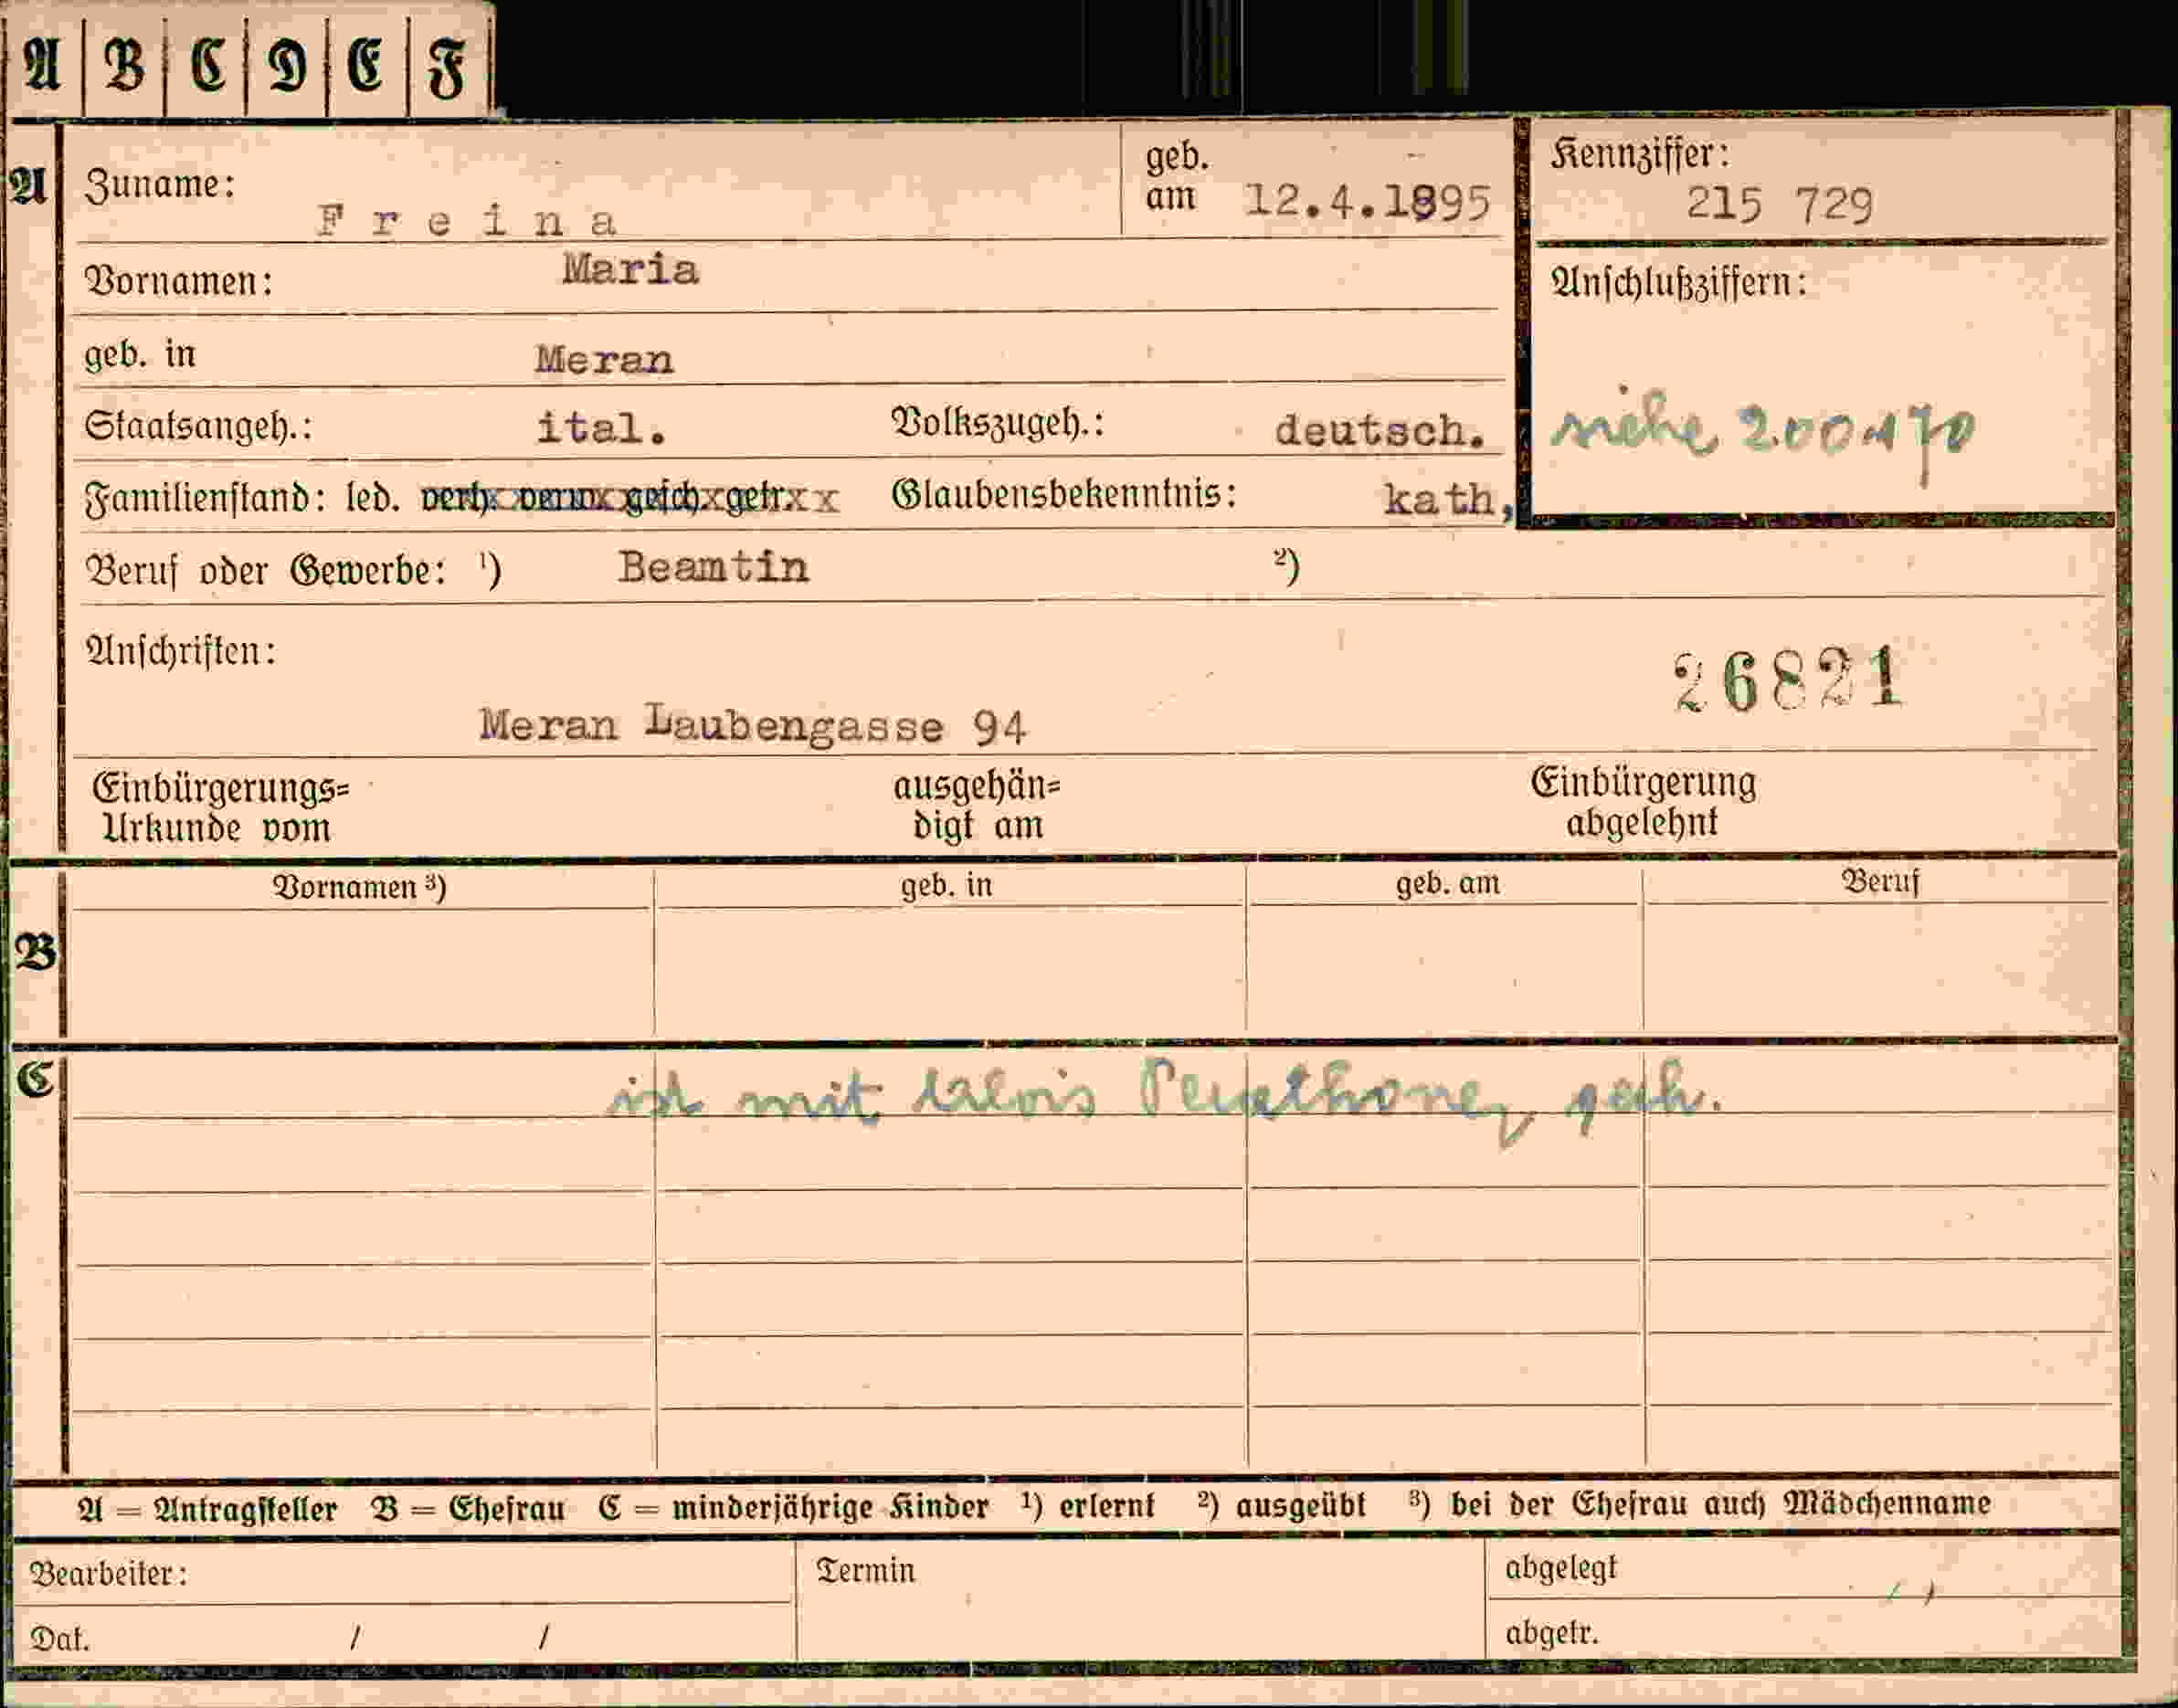 A B C D E F
A
Zuname: Freina
geb. am 12.4.1895
Kennziffer: 215 729
Vornamen: Maria
Anschlußziffern:
geb. in Meran
Staatsangeh.: ital. Volkszugeh.: deutsch.
siehe 200170
Familienstand: led. verh. verw. gesch. getr. Glaubensbekenntnis: kath,
Beruf oder Gewerbe: ¹) Beamtin ²)
Anschriften:
26821
Meran Laubengasse 94
Einbürgerungs=
Urkunde vom
ausgehän=
digt am
Einbürgerung
abgelehnt
B
Vornamen ³) geb. in geb. am Beruf
C
ist mit Alois
A = Antragsteller B = Ehefrau C = minderjährige Kinder ¹) erlernt ²) ausgeübt ³) bei der Ehefrau auch Mädchenname
Bearbeiter: Termin abgelegt
Dat. / / abgetr.